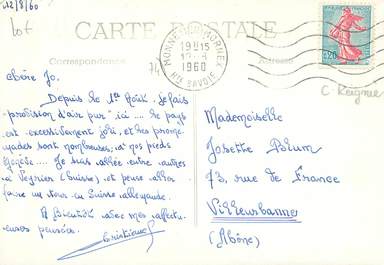 12/8/60
lot
CARTE POSTALE
Correspondance
Adresse
MONNETIER-MORNEX
19H15
1960
HTE SAVOIE
74
0,20
C. Reignier
Chère Jo.
Depuis le 1er Août. Je fais
"provision d'air pur" ici .... Le pays
est excessivement joli, et les prome
nades sont nombreuses, à nos pieds
Genève.... Je suis allée entre autres
à Veyrier (Suisse) et pense aller
faire un tour en Suisse allemande.
A Bientôt avec mes affectu
euses pensées.
Mademoiselle
Josette Blum
73, rue de France
Villeurbanne
(Rhône)